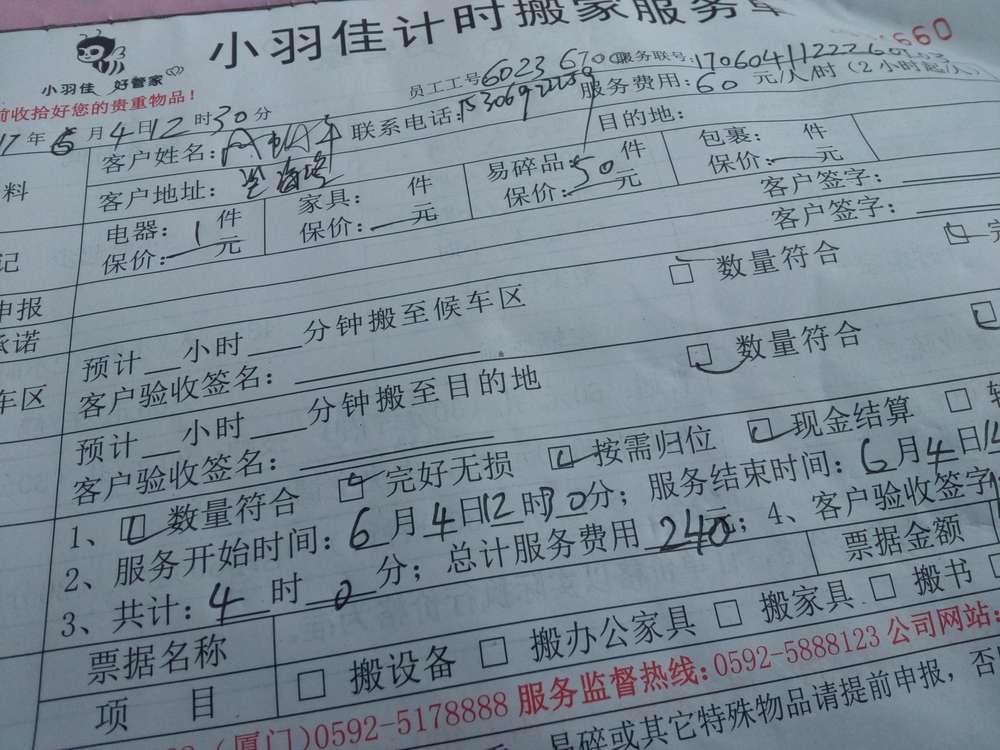 小羽佳计时搬家服务单
660
小羽佳 好管家
前收拾好您的贵重物品!
员工工号6023 670 服务联号:
17年6月4日12时30分
联系电话: 服务费用:60元/人/时(2小时起/人)
料 客户姓名: 目的地:
客户地址: 易碎品: 件 包裹: 件
电器:1件 家具: 件 保价:50元 保价:—元
保价:—元 保价:—元 客户签字:
记 客户签字:
申报 □ 数量符合 完
承诺 预计__小时___分钟搬至候车区
客户验收签名: □ 数量符合
车区 预计__小时___分钟搬至目的地
客户验收签名:
1、□ 数量符合 □ 完好无损 □ 按需归位 □ 现金结算 □
2、服务开始时间:6月4日12时30分;服务结束时间:6月4日
3、共计:4时0分;总计服务费用240元;4、客户验收签字
票据名称 票据金额
项 目 □ 搬设备 □ 搬办公家具 □ 搬家具 □ 搬书 □
(厦门)0592-5178888 服务监督热线:0592-5888123 公司网站:
易碎或其它特殊物品请提前申报,否